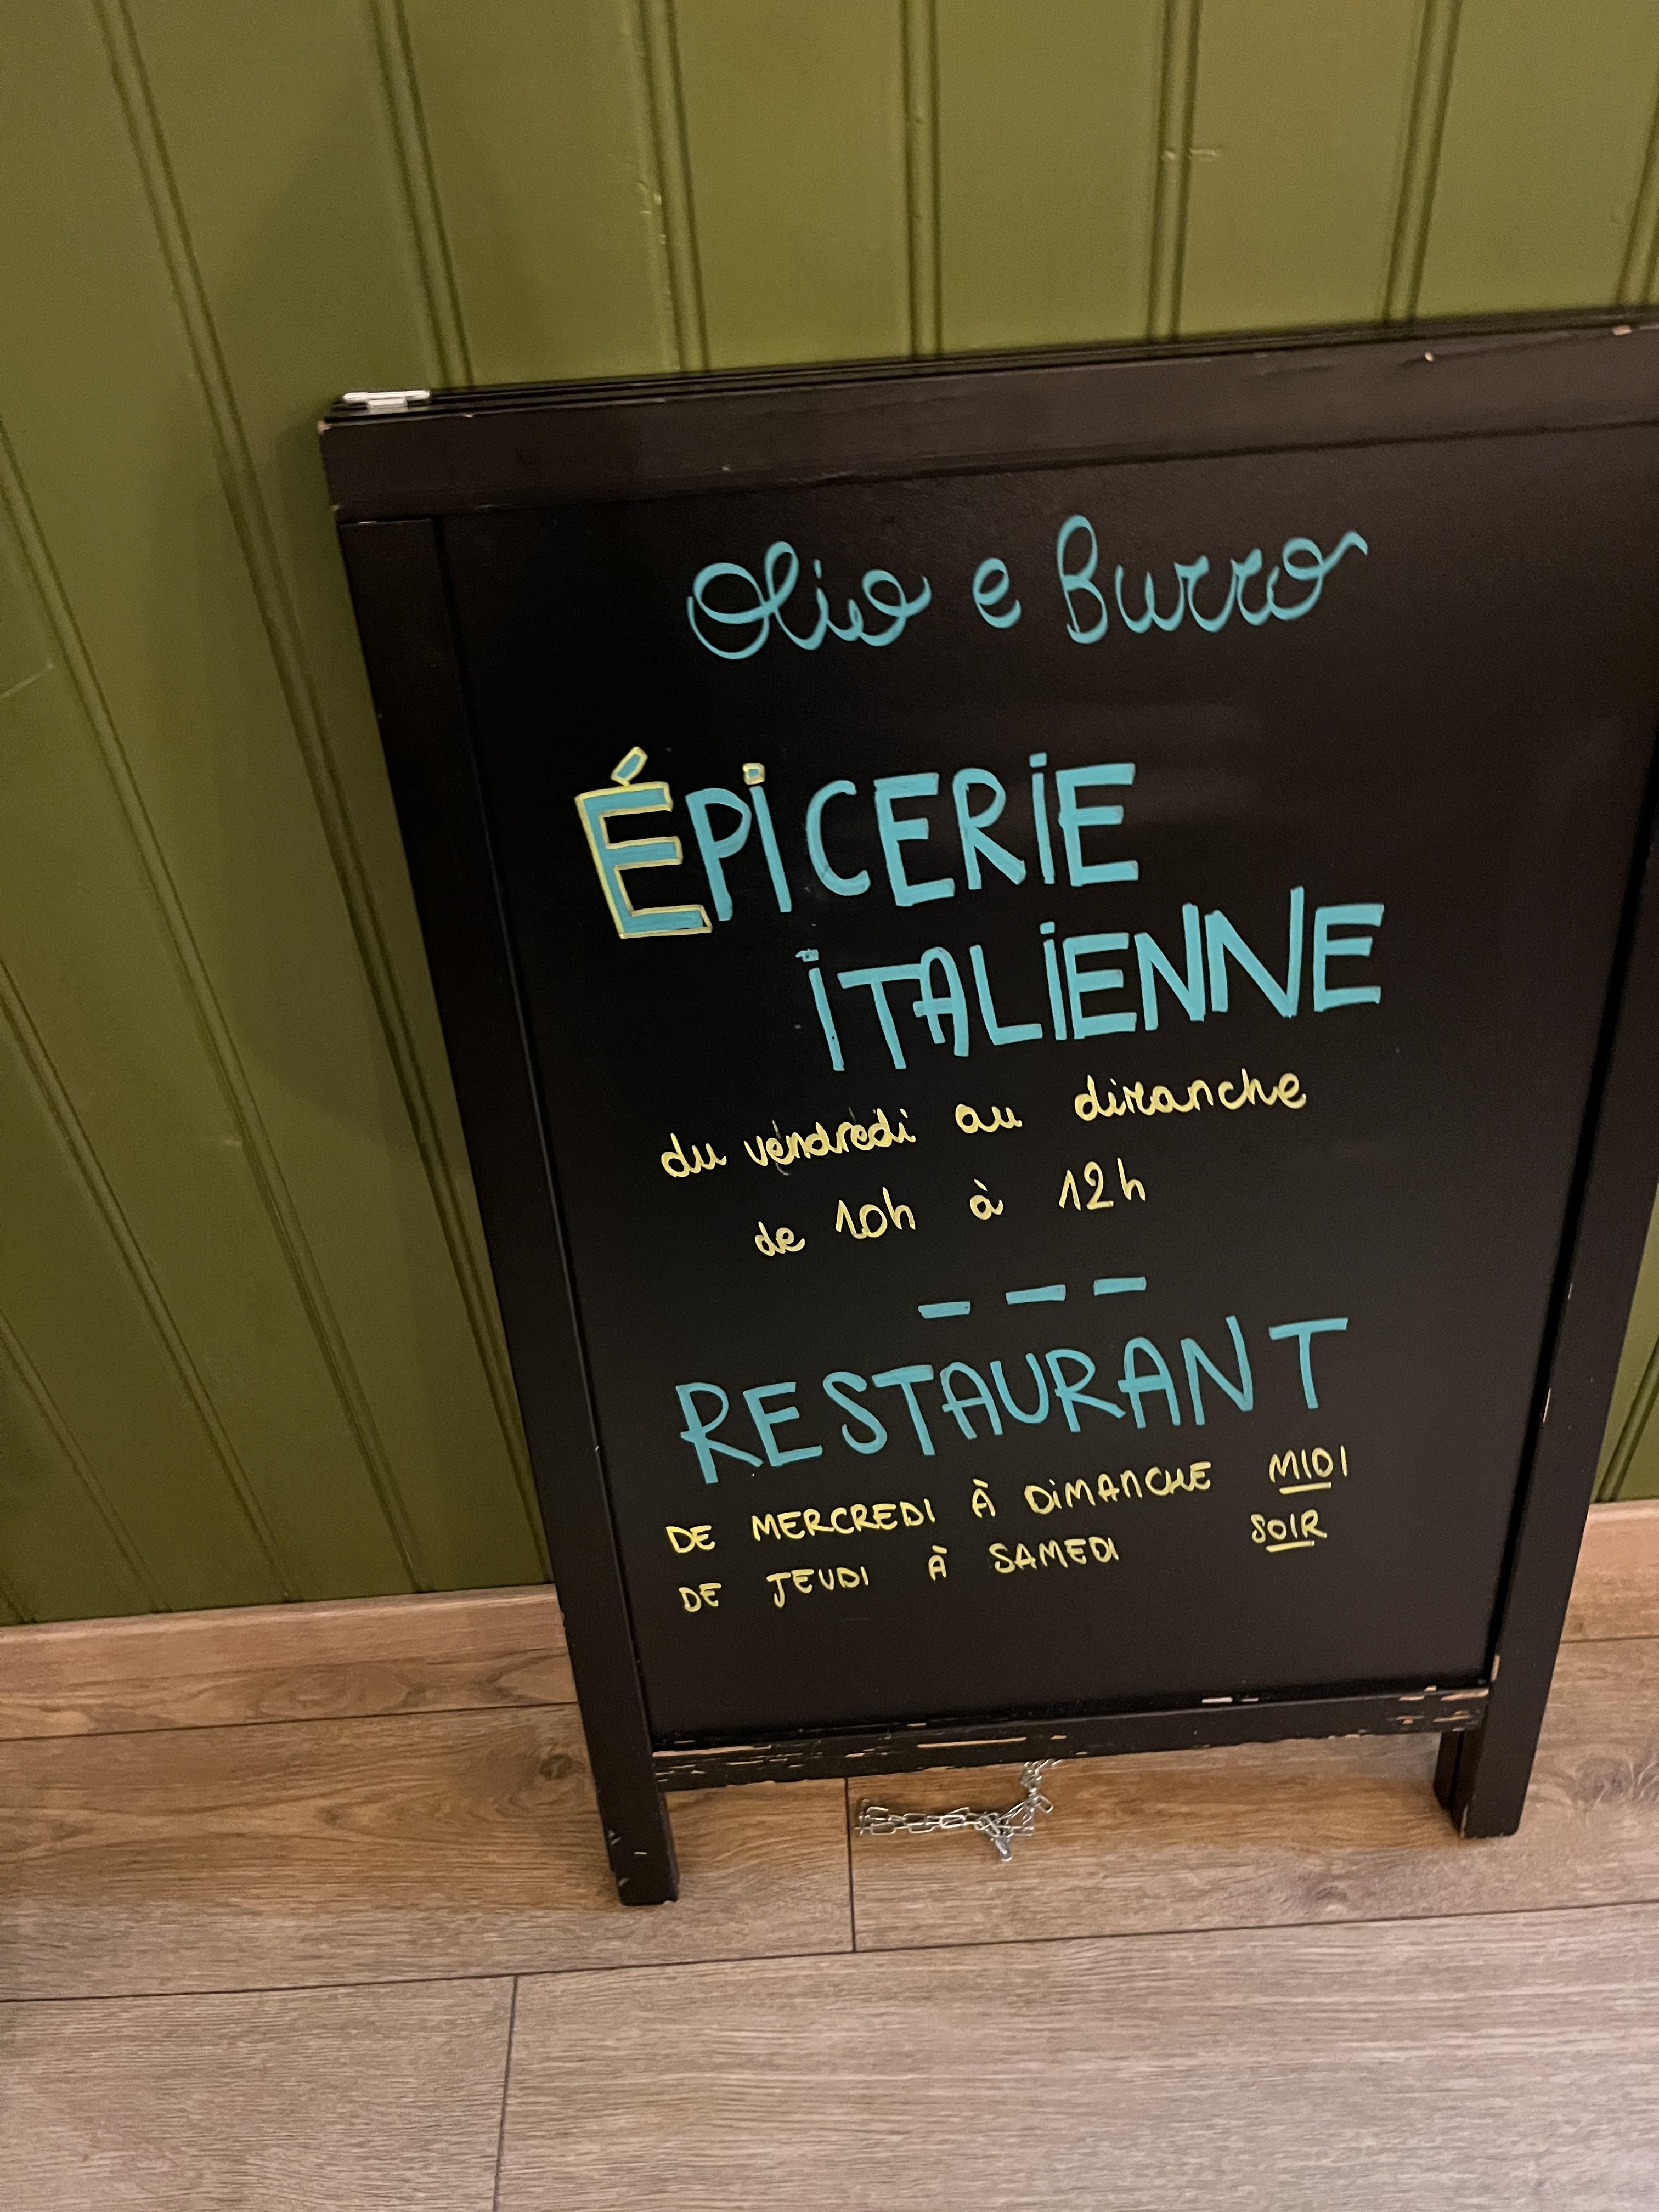 Olio e Burro
ÉPICERIE
ITALIENNE
du vendredi au dimanche
de 10h à 12h
---
RESTAURANT
DE MERCREDI À DIMANCHE MIDI
DE JEUDI À SAMEDI SOIR